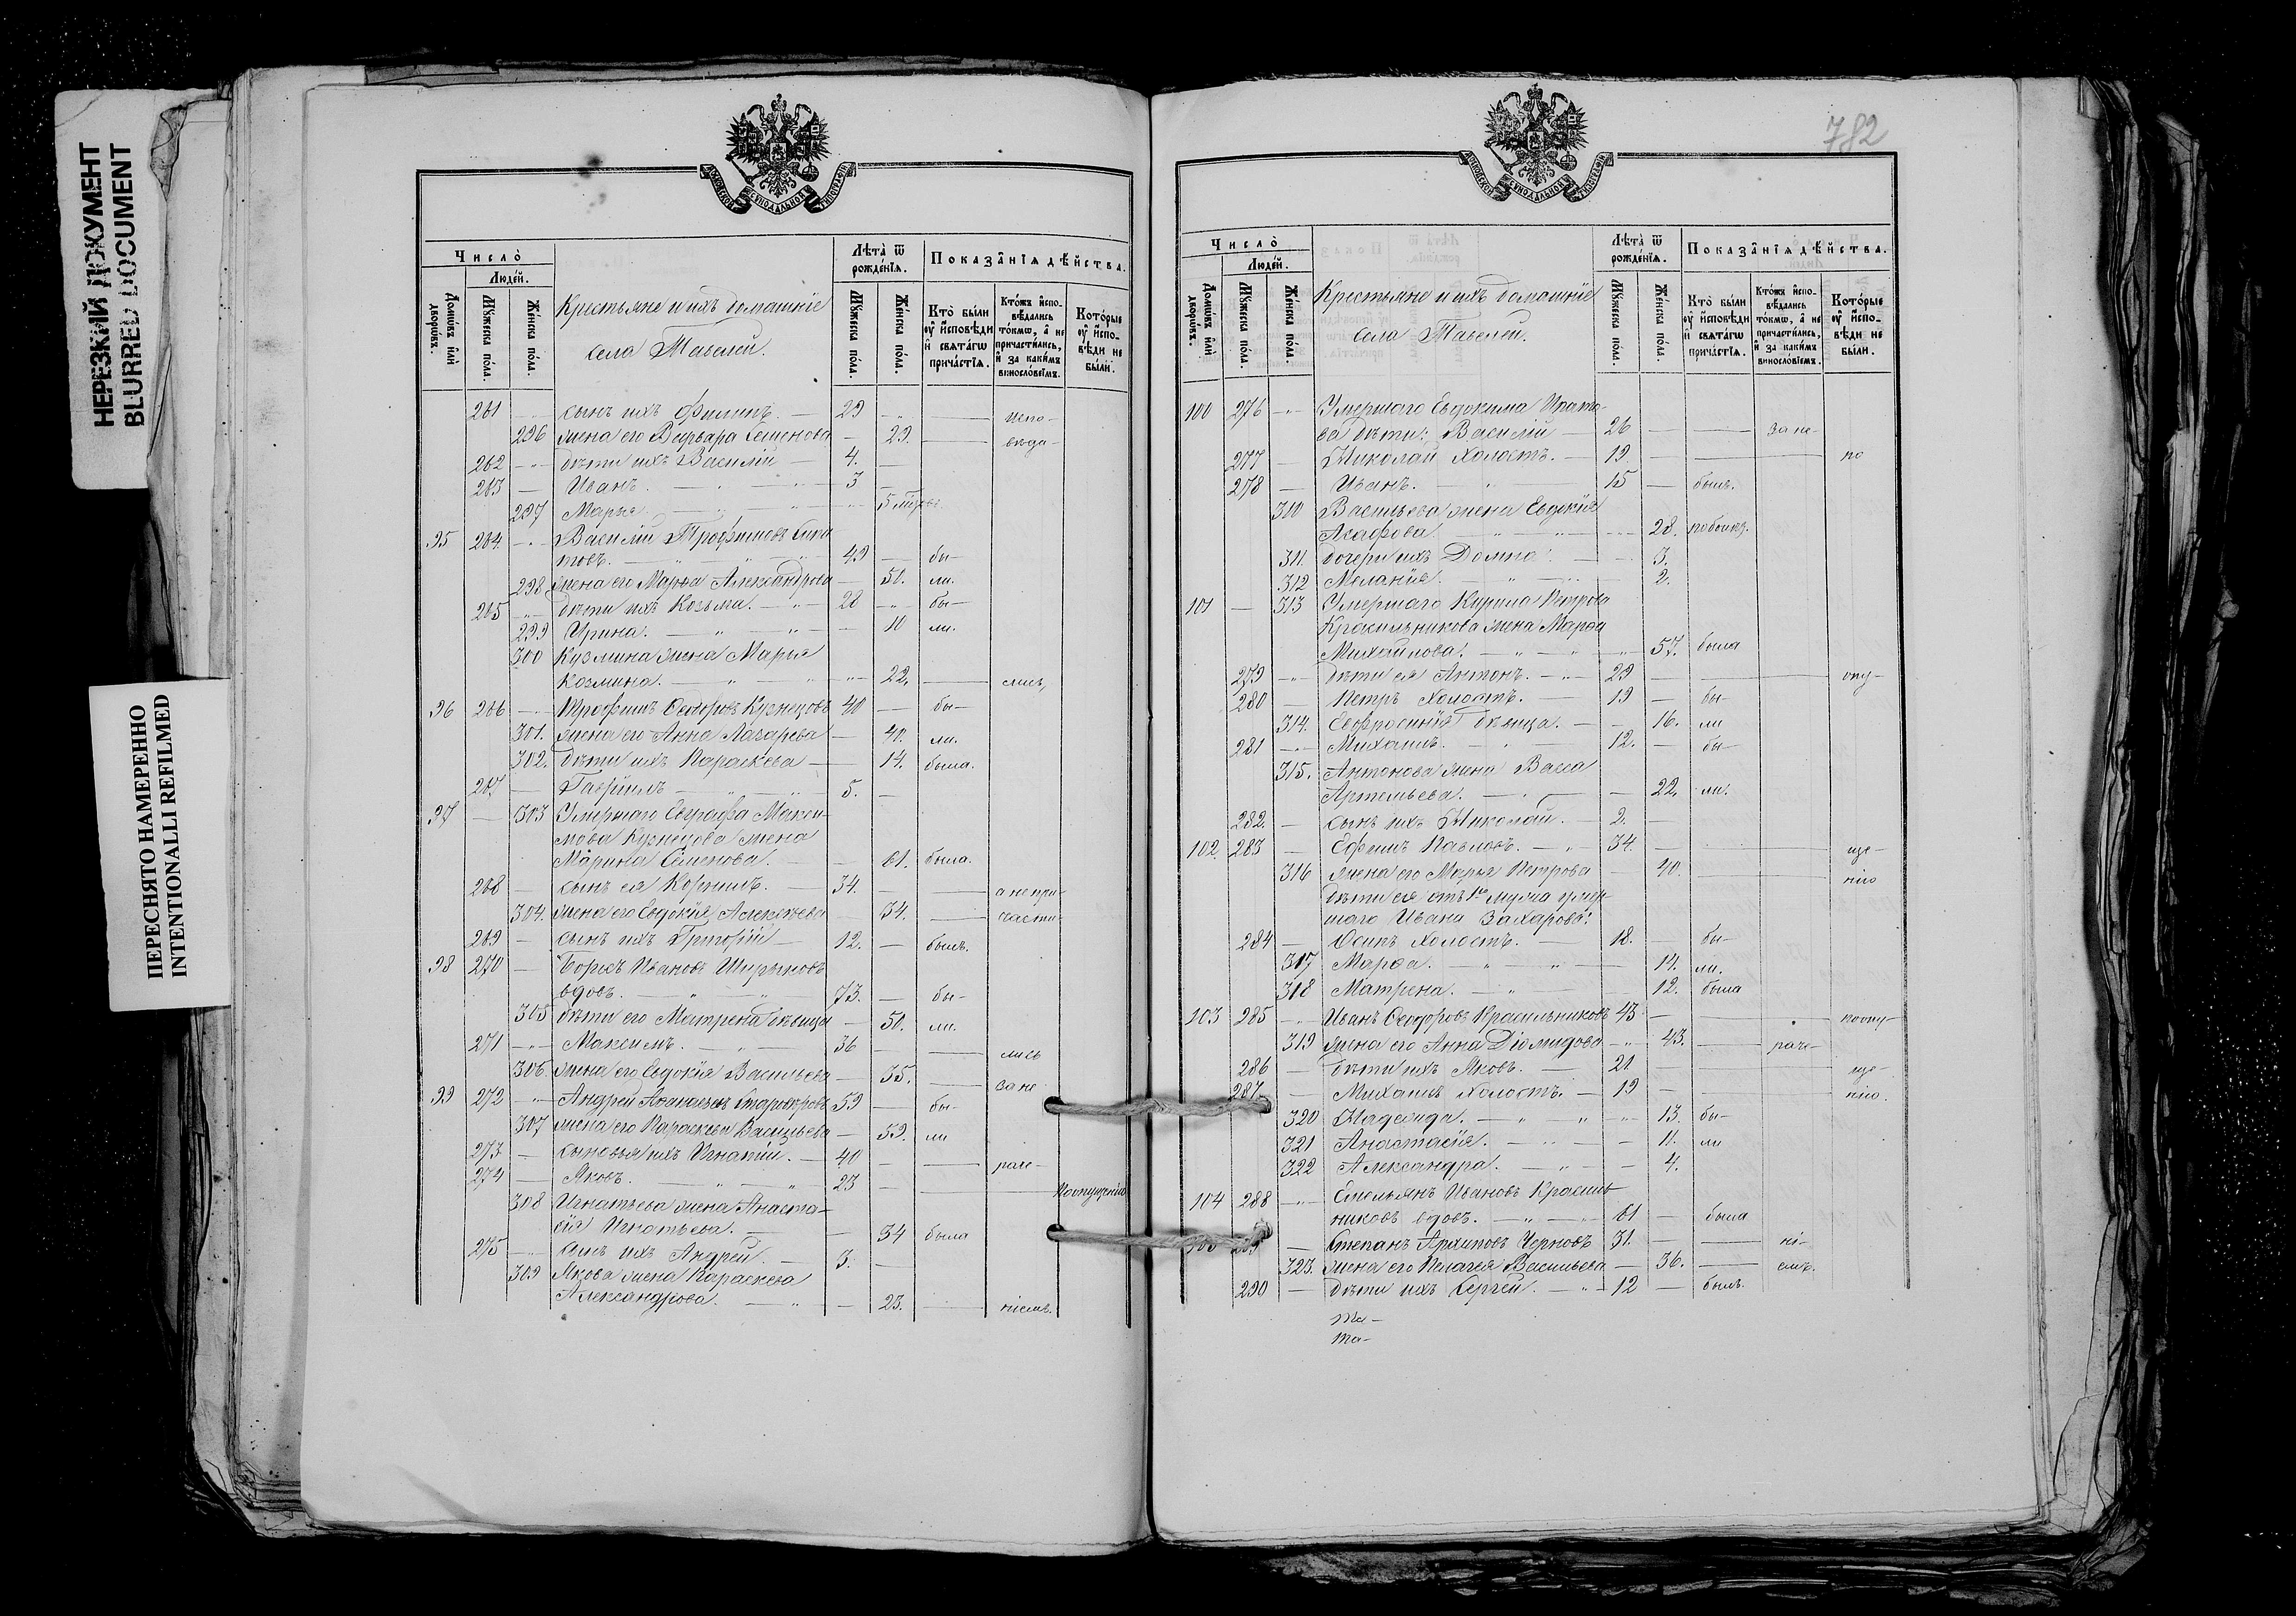 НЕРЕЗКИЙ ДОКУМЕНТ
BLURRED DOCUMENT
ПЕРЕСНЯТО НАМЕРЕННО
INTENTIONALLI REFILMED
Число̀
Люде́й.
Домѡвъ илѝ дворѡ́въ.
Мꙋ́жеска по́ла.
Же́нска по́ла.
Крестьяне и ихъ домашніе
села Тавелей.
Лѣта̀ ѿ рожде́нїѧ.
Мꙋ́жеска по́ла.
Же́нска по́ла.
Показа̑нїѧ дѣ́йства.
Кто̀ бы́ли оу҆ и҆сповѣди и҆ свѧта́гѡ прича́стїѧ.
Кто́жъ и҆спо-вѣ́дались то́кмѡ, а҆ не причасти́лись, и҆ за каки́мъ винослов́їемъ.
Кото́рые оу҆ и҆спо-вѣди не бы́ли.
261 сынъ ихъ Филипъ. — 29 — Испо-
296 жена его Варвара Семенова — 29. — вѣда-
262 дѣти ихъ Василій — 4.
263 — Иванъ. — 3
297 Марья — 5 мѣсяц.
95 264. Василій Трофимовъ
товъ. — 49 — бы-
298 жена его Марья Александрова — 50. ли.
265 дѣти ихъ Козьма. — 28 — бы-
299 Ирина. — 10 ли.
300 Кузмина жена Марья
Козмина. — 22. — лись,
96 266 Трофимъ Ѳедоровъ Кузнецовъ 40 — бы-
301. жена его Анна Лазарева — 40. ли.
302. дѣти ихъ Параскева — 14. была.
267 — Гавріилъ — 5. —
97 — 303 Умершаго Евграфа Макси-
мова Кузнецова жена
Марина Семенова. — 61. была.
268 — сынъ ея Корнилъ. — 34. — а не при-
304. жена его Евдокія Алексѣева — 34. — части-
269 — сынъ ихъ Григорій — 12. — былъ.
98 270 — Борисъ Ивановъ
вдовъ. — 73. — бы-
305 дѣти его Матрена дѣвица — 50. ли.
271 Максимъ. — 36 — лись
306. жена его Евдокія Васильева — 35. — за не
99 272 Андрей 59 — бы-
307 жена его Параскева Васильева — 59. ли
273 — сыновья ихъ Игнатій. — 40 — раче-
274 — Яковъ. — 23 — По опущенію
308 Игнатьева жена Анаста-
сія Игнатьева. — 34 была
275 сынъ ихъ Андрей. — 3. —
309 Якова жена Параскева
Александрова. — 23. — ніемъ.
782
Число̀
Люде́й.
Домѡвъ илѝ дворѡ́въ.
Мꙋ́жеска по́ла.
Же́нска по́ла.
Крестьяне и ихъ домашніе
села Тавелей.
Лѣта̀ ѿ рожде́нїѧ.
Мꙋ́жеска по́ла.
Же́нска по́ла.
Показа̑нїѧ дѣ́йства.
Кто̀ бы́ли оу҆ и҆сповѣди и҆ свѧта́гѡ прича́стїѧ.
Кто́жъ и҆спо-вѣ́дались то́кмѡ, а҆ не причасти́лись, и҆ за каки́мъ винослов́їемъ.
Кото́рые оу҆ и҆спо-вѣди не бы́ли.
100 276 Умершаго Евдокима Ипато-
ва дѣти: Василій — 26 — за не-
277 — Николай холостъ. — 19 — по
278 Иванъ. — 15 — былъ.
310 Васильева жена Евдокія
Асафова. — 28.
311. дочери ихъ Домна — 3.
312 Меланія. — 2.
101 — 313 Умершаго Кирила Петрова
Красильникова жена Марѳа
Михайлова. — 57. была
279 дѣти ея Антонъ. — 29 — опу-
280 — Петръ холостъ. — 19 — бы-
314. Евфросинія дѣвица. — 16. ли
281 Михаилъ. — 12. — бы-
315. Антонова жена Васса
Артемьева. — 22. ли.
282. — сынъ ихъ Николай. — 2. —
102. 283 — Ефимъ Павловъ. — 34. — ще-
316 жена его Марья Петрова — 40. — нію
дѣти ея отъ 1го мужа умер-
шаго Ивана Захарова:
284 — Осипъ холостъ. — 18. бы-
317 Марѳа. — 14. ли.
318 Матрена. — 12. была
103 285 Иванъ Ѳедоровъ Красильниковъ 43 — по опу-
319 жена его Анна Діомидова — 43. — раче-
286 — дѣти ихъ Яковъ. — 21 — ще-
287. — Михаилъ холостъ. — 19 — нію.
320 Надежда. — 13. бы-
321 Анастасія. — 11. ли
322 Александра. — 4.
104 288 Емельянъ Ивановъ Красиль-
никовъ вдовъ. — 61 — была
Степанъ Архиповъ Черновъ 31. — ні-
323. жена его Пелагея Васильева — 36. — емъ.
290 — дѣти ихъ Сергей. — 12 — былъ.
та-
та-